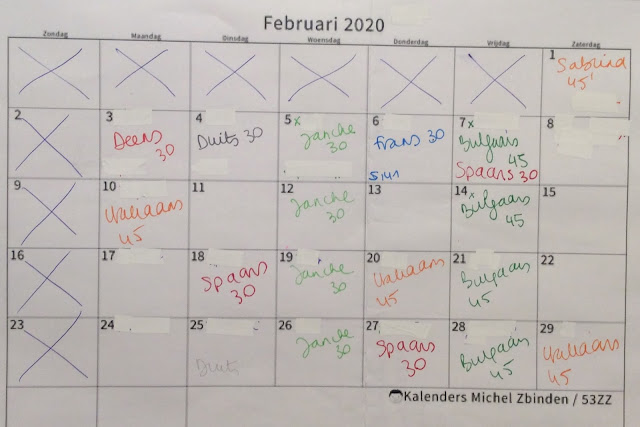 Februari 2020
Zondag Maandag Dinsdag Woensdag Donderdag Vrijdag Zaterdag
1
Sabrina
45'
2 3 4 5x 6 7x 8
Deens
30
Duits 30
Janche
30
Frans 30
Bulgaars
45
Spaans 30
9 10 11 12 13 14x 15
Italiaans
45
Janche
30
Bulgaars
45
16 17 18 19 20 21 22
Spaans
30
Janche
30
Italiaans
45
Bulgaars
45
23 24 25 26 27 28 29
Duits
Janche
30
Spaans
30
Bulgaars
45
Italiaans
45
Kalenders Michel Zbinden / 53ZZ